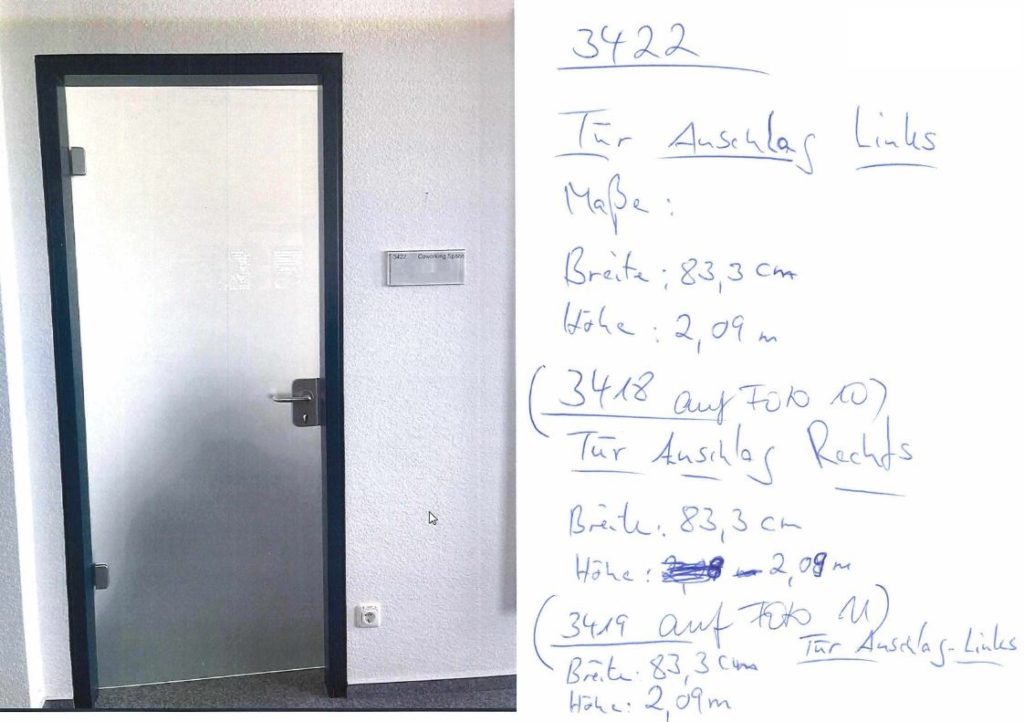 3422 Coworking Space
3422
Tür Anschlag Links
Maße :
Breite: 83,3 cm
Höhe: 2,09 m
(3418 auf Foto 10)
Tür Anschlag Rechts
Breite: 83,3 cm
Höhe: 2,09 m
(3419 auf Foto 11)
Tür Anschlag-Links
Breite: 83,3 cm
Höhe: 2,09 m